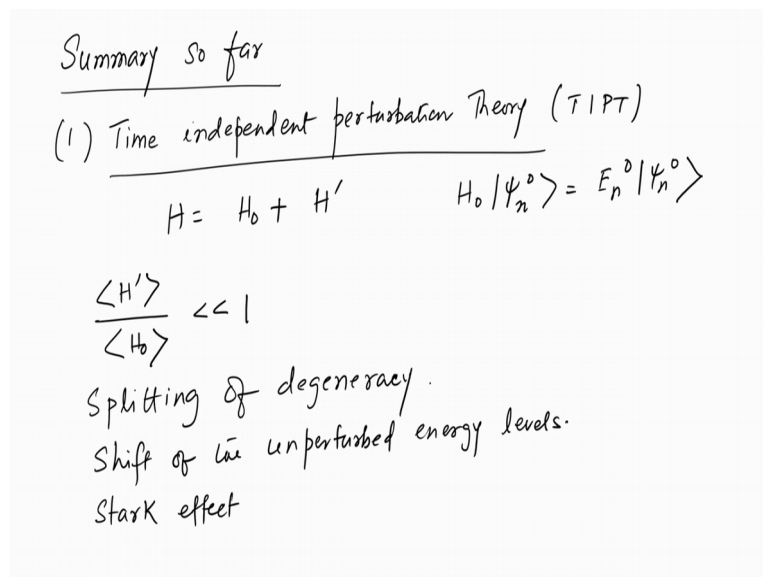 Summary so far
(1) Time independent perturbation Theory (TIPT)
H = H₀ + H′ H₀|ψₙ⁰> = Eₙ⁰|ψₙ⁰>
<H′>
<H₀>
<< 1
Splitting of degeneracy.
Shift of the unperturbed energy levels.
Stark effect